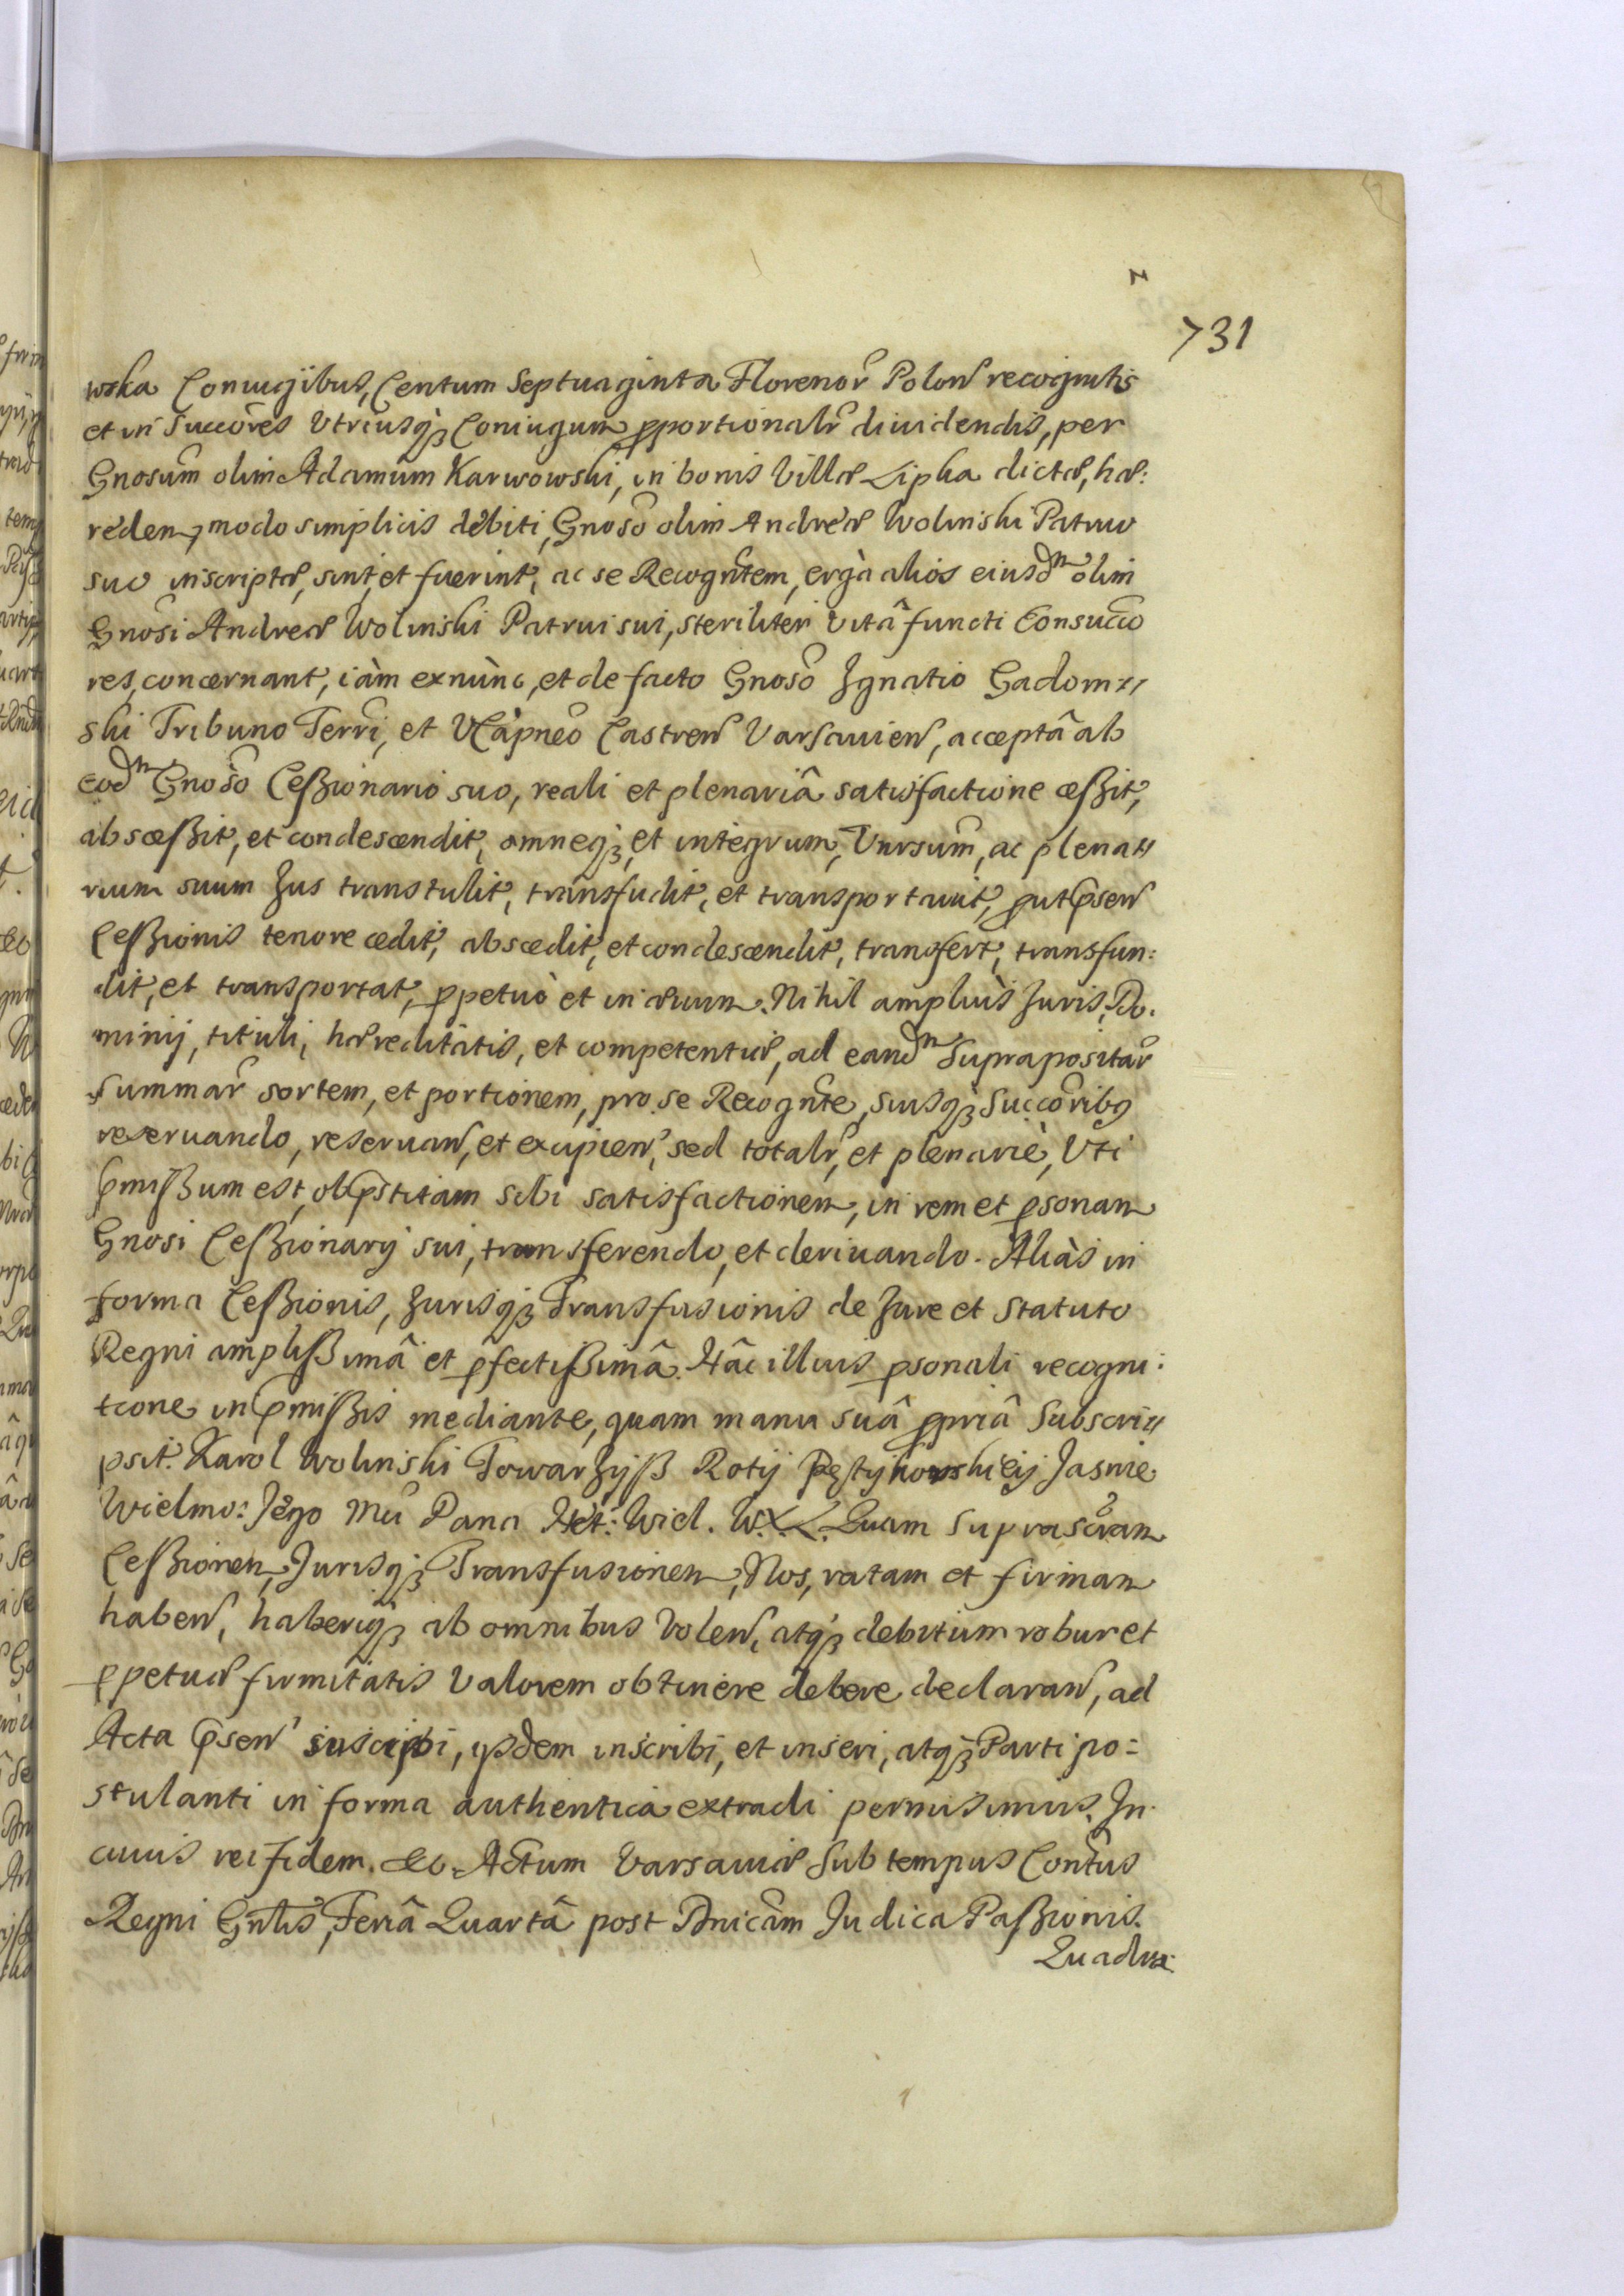 731
wska Coniugibus, Centum Septuaginta Florenor Polon recognitis
et in Succores Vtriusq3 Coniugum pportionalr diuidendis, per
Gnosum olim Adamum Karwowski, in bonis Villæ Lipka dictæ, hæ:
redem, modo simplicis debiti, Gnoso olim Andreæ Wolinski Patruo
suo inscriptæ, sint, et fuerint, ac se Recogntem, ergà alios eiusdm olim
Gnosi Andreæ Wolinski Patrui sui, steriliter vitâ functi Consucco
res, concernant, iàm exnùnc, et de facto Gnoso Ignatio Gadom//
ski Tribuno Terri, et VCapneo Castren Varsauien, acceptâ ab
eodm Gnoso Cessionario suo, reali et plenariâ satisfactione cessit,
abscessit, et condescendit, omneq3, et integrum, Vnrsum, ac plena//
rium suum Jus transtulit, transfudit, et transportauit, put psen
Cessionis tenore cedit, abscedit, et condescendit, transfert, transfun:
dit, et transportat, ppetuò et in æuum. Nihil ampliùs Juris, Do.
minij, tituli, hæreditatis, et competentiæ, ad eandm Suprapositar
Summar sortem, et portionem, pro se Recognte, suisq3 Succoribg
reseruando, reseruan, et excipien, sed totalr, et plenariè, Vti
pmissum est, ob pstitam sibi satisfactionem, in rem et psonam
Gnosi Cessionarij sui, transferendo, et deriuando. Aliàs in
forma Cessionis, Jurisq3 Transfusionis de Jure et Statuto
Regni amplissimâ et pfectissimâ. Hâc illius psonali recogni:
tione in pmissis mediante, quam manu suâ ppriâ Subscri//
psit. Karol Wolinski Towarzyß Roty Pętykowskiey Jasnie
Wielmo: Jego Mci Pana Het: Wiel. W.X.L. Quam suprascram
Cessionem, Jurisq3 Transfusionem, Nos, ratam et firmam
haben, haberiq3 ab omnibus Volen, atq3 debitum robur et
ppetuæ firmitatis Valorem obtinere debere declaran, ad
Acta psen suscipi, ijsdem inscribi, et inseri, atq3 Parti po=
stulanti in forma authentica extradi permisimus. In
cuius rei fidem. &c. Actum Varsauiæ Sub tempus Contus
Regni Gnlis, Feriâ Quartâ post Dnicam Judica Passionis.
Quadra: